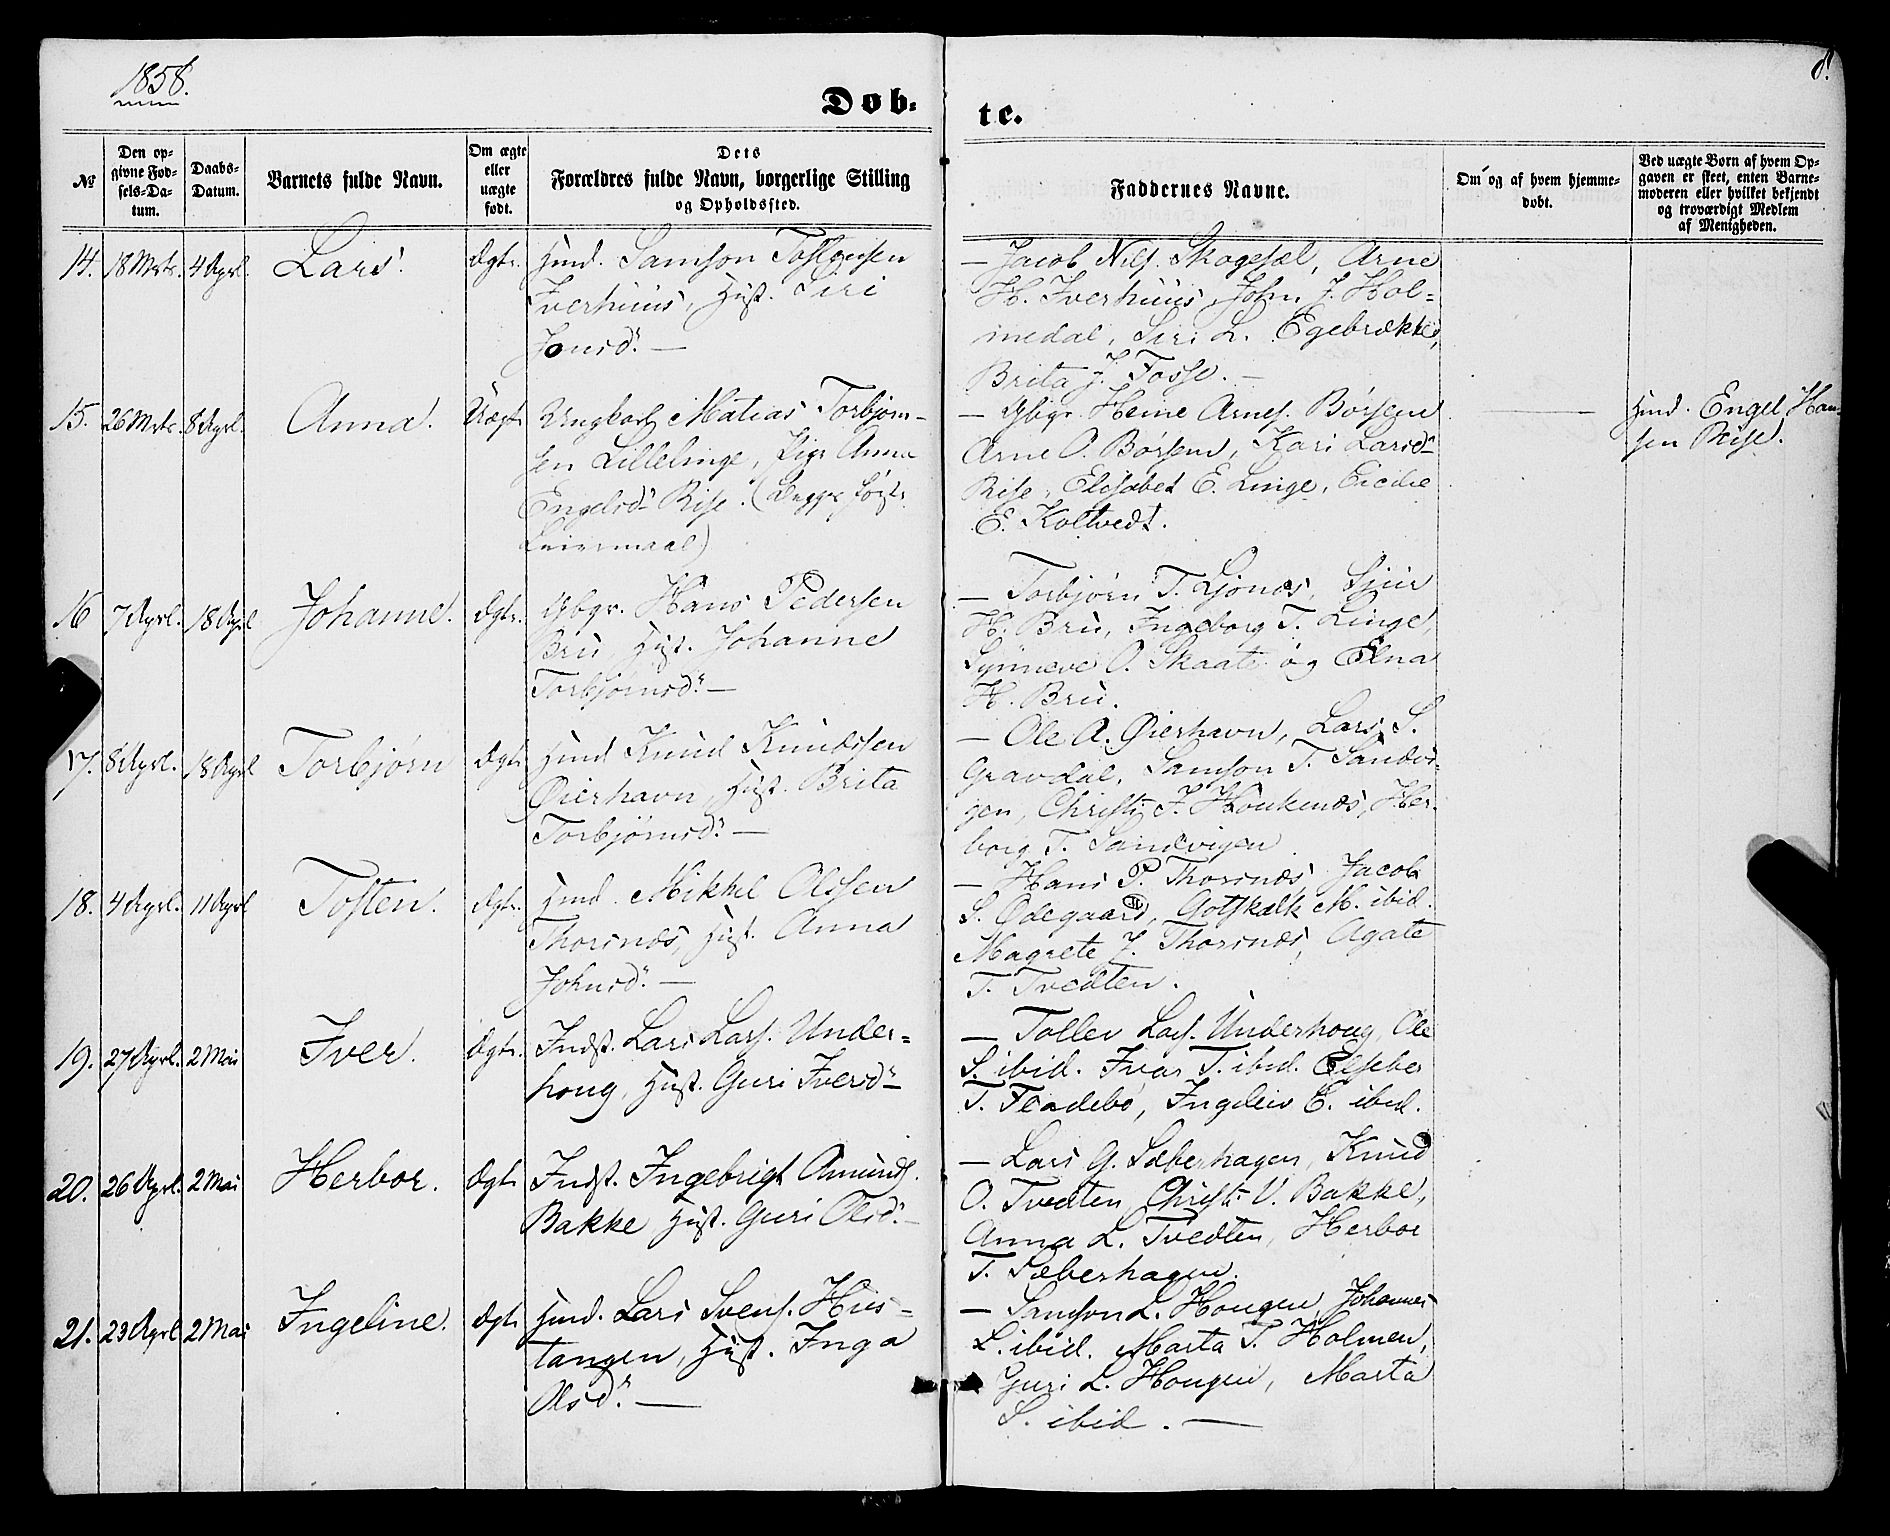 1858.
8.
Døb-
te.
№
Den opgivne Fødsels-Datum.
Daabs-Datum.
Barnets fulde Navn.
Om ægte eller uægte født.
Dets Forældres fulde Navn, borgerlige Stilling og Opholdssted.
Faddernes Navne.
Om og af hvem hjemmedøbt.
Ved uægte Børn af hvem Opgaven er skeet, enten Barnemoderen eller hvilket bekjendt og troværdigt Medlem af Menigheden.
14. 18 Mrts. 4 Aprl. Lars. Ægte.
Huusd. Samson
Iverhuus, Hust. Siri
Jonsd. —
— Jacob Nils. Skogesæl, Arne
H. Iverhuus, John J. Hol-
medal, Siri L. Egebrække,
Brita J. Fosse. —
15. 26 Mrts. 8 Aprl. Anna. Uægt
Ungkarl Matias Torbjørn-
sen Lillelinge, Pige Anna
Engelsd. Rise. (Begges første
Leiermaal)
— Gbgr. Heine Arnes. Børsem
Arne O. Børsem, Kari Larsd.
Rise, Elisabet E. Linge, Cicilie
E. Koltvedt.
Huusd. Engel Han-
sen Rise.
16 7 Aprl. 18 Aprl Johanne. Ægte.
Gbgr. Hans Pedersen
Bru, Hust. Johanne
Torbjørnsd. —
— Torbjørn T. Ljonæs, Sjur
H. Bru, Ingeborg T. Linge,
Synneve O. Skaate og Elna
H. Bru.
17. 8 Aprl. 18 Aprl Torbjørn Ægte
Huusd Knud Knudssen
Øierhavn, Hust. Brita
Torbjørnsd. —
— Ole A. Øierhavn, Lars S.
Gravdal, Samson T. Sandvi-
gen, Christi J. Houkenæs, Her-
borg T. Sandvigen
18. 4 Aprl. 11 Aprl Tosten. Ægte.
Huusd. Mikkel Olssen
Thorsnæs, Hust. Anna
Johnsd. —
— Hans P. Thorsnæs Jacob
S. Ødegaard, Gotskalk M. ibid.
Magrete J. Thorsnæs, Agate
T. Tvedten.
19. 27 Aprl. 2 Mai Iver. Ægte.
Indst. Lars Lars. Under-
houg, Hust. Guri Iversd. —
— Tollev Lars. Underhoug, Ole
S. ibid. Ivar T. ibid. Elseber
T. Fladebø, Ingeleiv E. ibid.
20. 26 Aprl. 2 Mai Herbor. Ægte
Indst. Ingebrigt Amunds.
Bakke Hust. Guri Olsd. —
— Lars G. Sæberhagen, Knud
O. Tvedten, Christi V. Bakke,
Anna L. Tvedten, Herbor
T. Sæberhagen.
21. 23 Aprl 2 Mai Ingeline. Ægte
Huusd. Lars Svens. Hus-
tangen, Hust. Inga
Olsd. —
— Samson L. Hougen, Johannes
L. ibid. Marta T. Holmen,
Guri L. Hougen, Marta
S. ibid. —